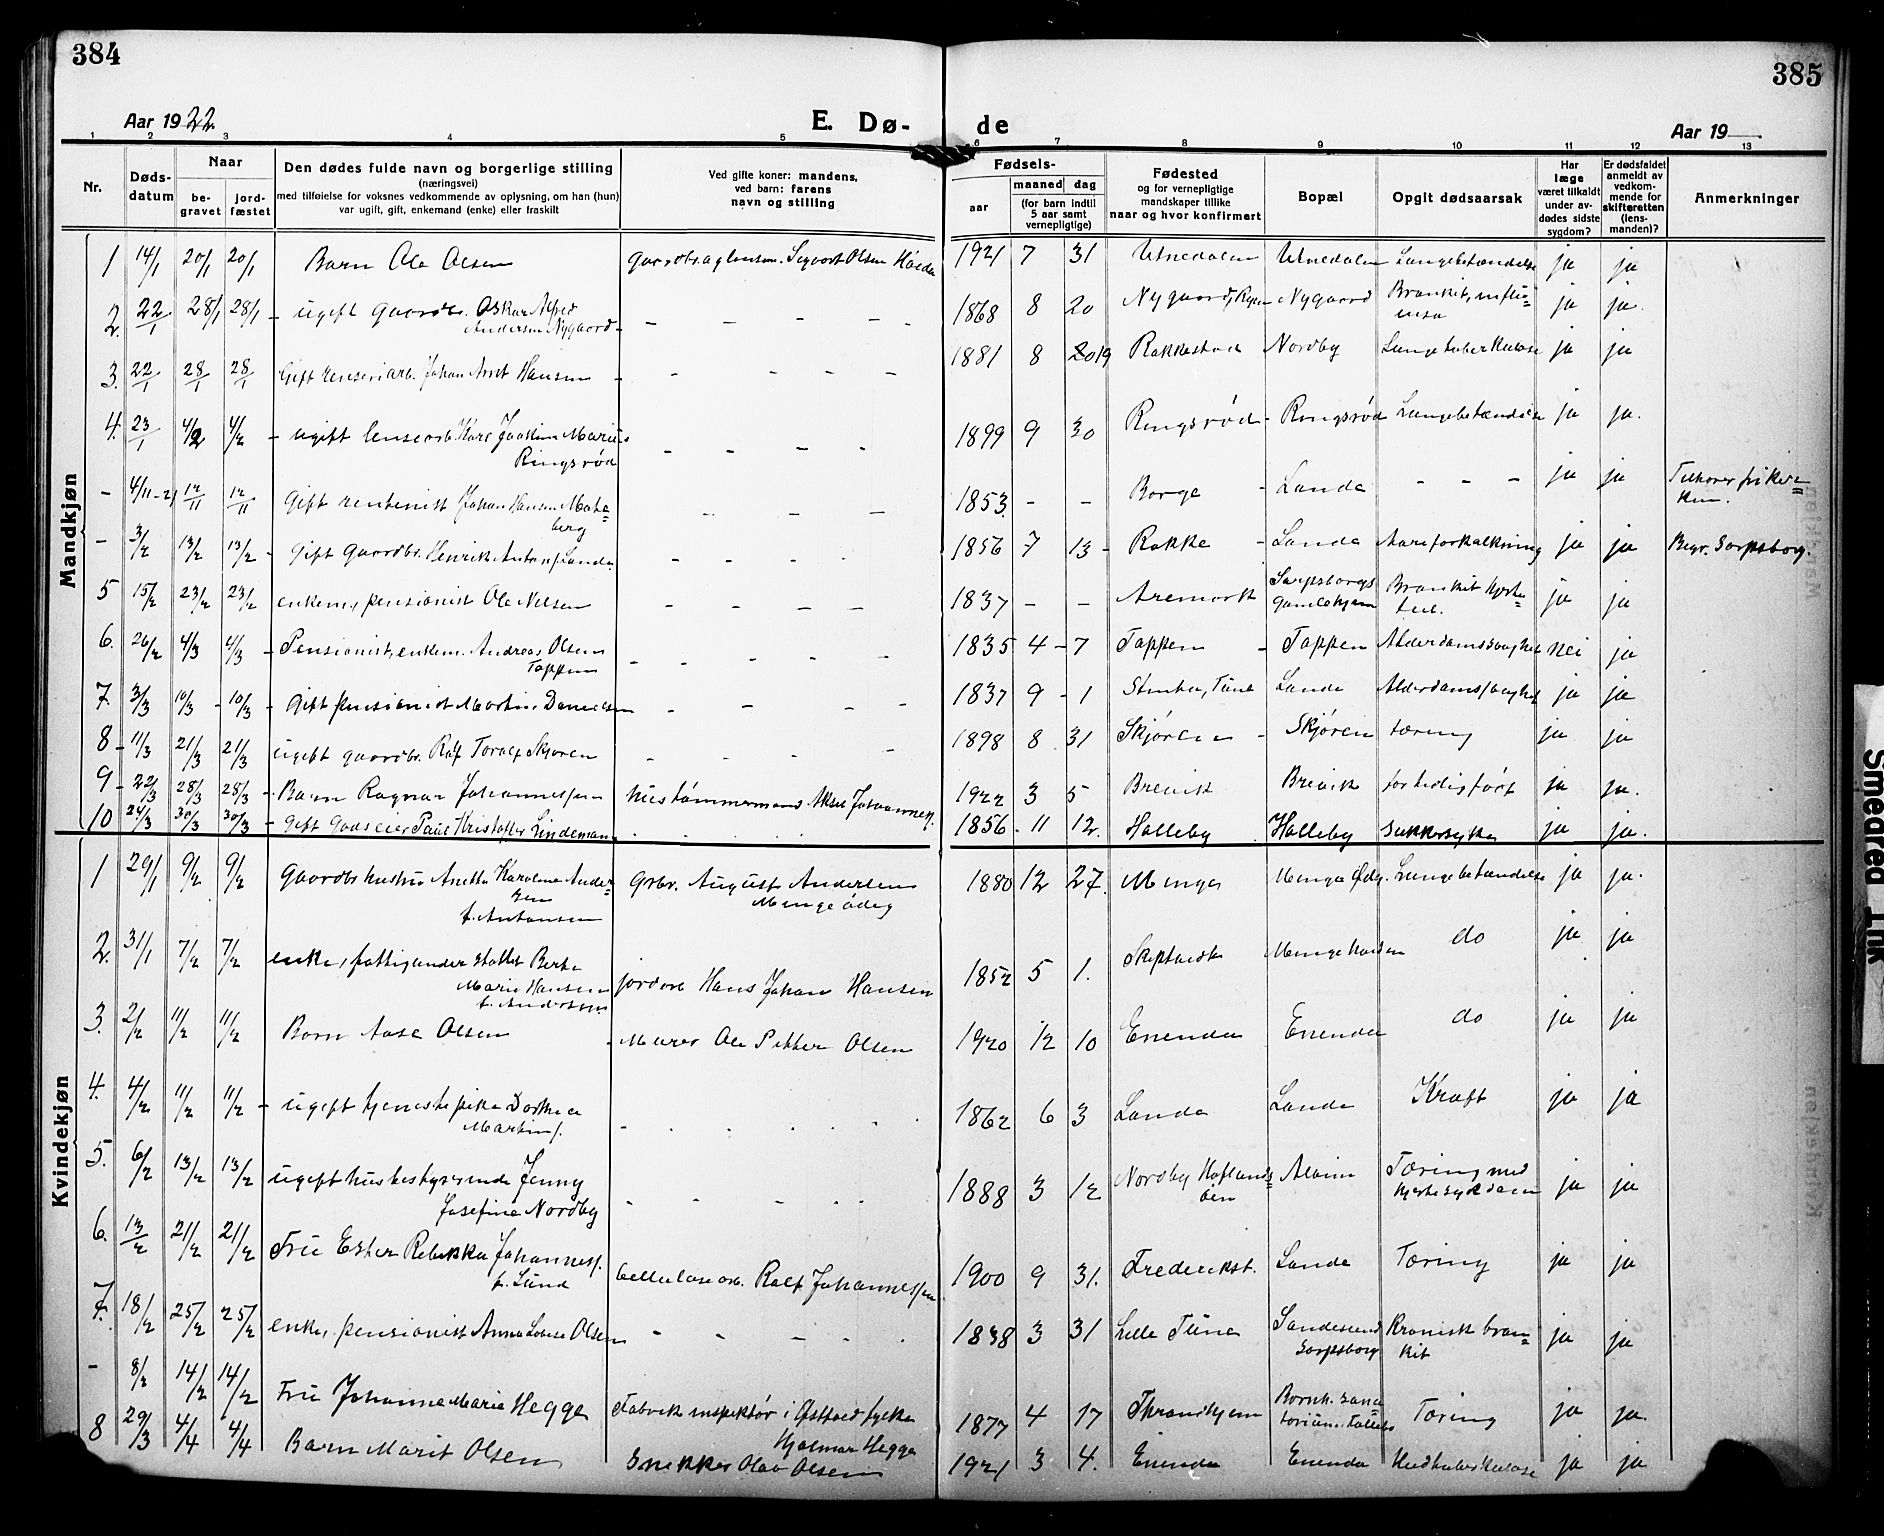 384
385
Aar 1922
E. Dø-
de
Aar 19
1 2 3 4 5 6 7 8 9 10 11 12 13
Nr.
Døds-
datum
Naar
be-
gravet
jord-
fæstet
Den dødes fulde navn og borgerlige stilling
(næringsvei)
med tilføielse for voksnes vedkommende av oplysning, om han (hun)
var ugift, gift, enkemand (enke) eller fraskilt
Ved gifte koner: mandens,
ved barn: farens
navn og stilling
Fødsels-
aar
maaned dag
(for barn indtil
5 aar samt
vernepligtige)
Fødested
og for vernepligtige
mandskaper tillike
naar og hvor konfirmert
Bopæl
Opgit dødsaarsak
Har
læge
været tilkaldt
under av-
dødes sidste
sygdom?
Er dødsfaldet
anmeldt av
vedkom-
mende for
skifteretten
(lens-
manden)?
Anmerkninger
Mandkjøn
1 14/1 20/1 20/1 Barn Ole Olsen Sigvart Olsen 1921 7 31 Utnedalen Utnedalen Lungebetændelse ja ja
2 22/1 28/1 28/1 - ugift Gaardbr. Oskar Alfred
Andersen Nygaard - 1868 8 20 Nygaard, Nygaard Bronkit, influ=
ensa ja ja.
3. 22/1 28/1 28/1 Gift renseriarb. Johan Arnt Hansen - 1881 8 2019 Rakkestad Nordby Lungetuberkulose ja ja
4. 23/1 4/2 4/2 - ugift lensearb. Karl Joakim Marius
Ringsrød 1899 9 30 Ringsrød - Ringsrød Lungebetændelse ja ja.
- 4/11-21 12/11 12/11 Gift rentenist Johan Hansen
berg 1853. - - Borge - Lande - - - ja ja
- 3/2 13/2 13/2 - Gift Gaardbr. Henrik Antons. Lande 1856 7 13 - Rakke - Lande Aareforkalkning ja ja Begr. Sarpsborg.
5 15/2 23/2 23/2 enkem, pensionist Ole Nilsen 1837 - - Aremark Sarpsborgs
Gamlehjem Bronkit Hjerte=
feil. ja ja
6. 26/2 4/3 4/3 - Pensionist, enkem. Andreas Olsen
Tappen 1835 4 - 7 Tappen - Tappen Alderdomssvaghet nei ja
7. 3/3 10/3 - 10/3 - Gift pensionist Martin Danielsen 1837 9 - 1 Tune Lande Alderdomssvaghet ja ja
8 - 11/3 21/3 21/3 ugift gaardbr. Rolf Toralf Skjøren 1898 8 31 Skjøren - Skjøren tæring ja ja
9 - 22/3 28/3 28/3 - Barn Ragnar Johannessen Hustømmermand Aksel Johannes. 1922 3 5 Brevik Brevik for tidlig født ja ja.
10 24/3 30/3 30/3 - Gift Godseier Paul Kristoffer Lindeman 1856 - 11 12. Halleby Halleby Sukkersyke ja ja.
Kvindekjøn
1 29/1 9/2 9/2 Gaardbr hustru Anette Karoline Ander=
sen
f. Antonsen Grbr. August Andersen
Minge ødeg 1880 12 27. Minge Minge Ødg. Lungebetændelse ja ja.
2. 31/1 7/2 7/2 enke, fattigunderstøttet Berte
Marie Hansen
f. Andersen jordarb Hans Johan Hansen 1852 5 1. Skiptvedt do ja ja
3. 2/2 11/2 11/2 Barn Aase Olsen - Murer Ole Petter Olsen 1920 12 10 Enenda Enenda do ja ja
4. 4/2 11/2 11/2 - ugift tjenestepike Dorthea
Martins. 1862 6 3 Lande Lande Kræft ja ja
5. 6/2 13/2 13/2 ugift husbestyrerinde Jenny
Josefine Nordby 1888 3 12 Nordby Haflunds=
øen Alvim Tæring med
hjertesykdom ja ja
6. 13/2 21/2 21/2 Fru Ester Rebekka Johanness.
f. Lund Cellulosearb. Rolf Johannessen 1900 9 31. Frederikst. Lande Tæring ja ja
7. 18/2 25/2 25/2 enke, pensionist Anna Lovise Olsen 1838 3 31 Lille Tune Sandesund
Sarpsborg Kronisk bron=
kit ja ja
- 8/2 14/2 14/2 Fru Johanne Marie Hegge Fabrikinspektør i Østfold fylke
Hjalmar Hegge 1877 4 17 Throndhjem Tæring ja ja.
8 29/3 4/4 4/4 Barn Marit Olsen Snekker Olav Olsen 1921 3 4. Enenda Enenda Hudtuberkulose ja ja
Smedrød Trk